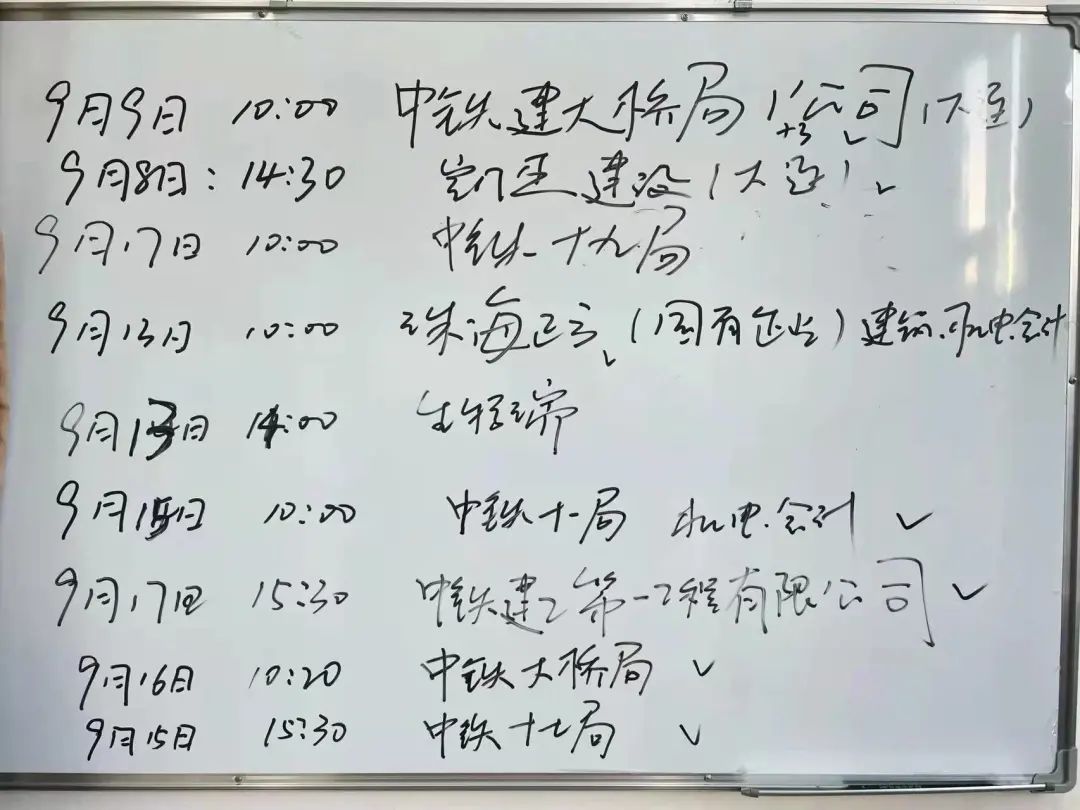 9月9日 10:00 中铁建大桥局1公司(大连)
+3
9月8日: 14:30 凯正建设(大连)
9月17日 10:00 中铁十九局
9月13日 10:00 珠海正方(国有企业)建筑.机电.会计
9月13日 14:00
9月15日 10:00 中铁十一局 机电.会计
9月17日 15:30 中铁建工第一工程有限公司
9月16日 10:20 中铁大桥局
9月15日 15:30 中铁十七局